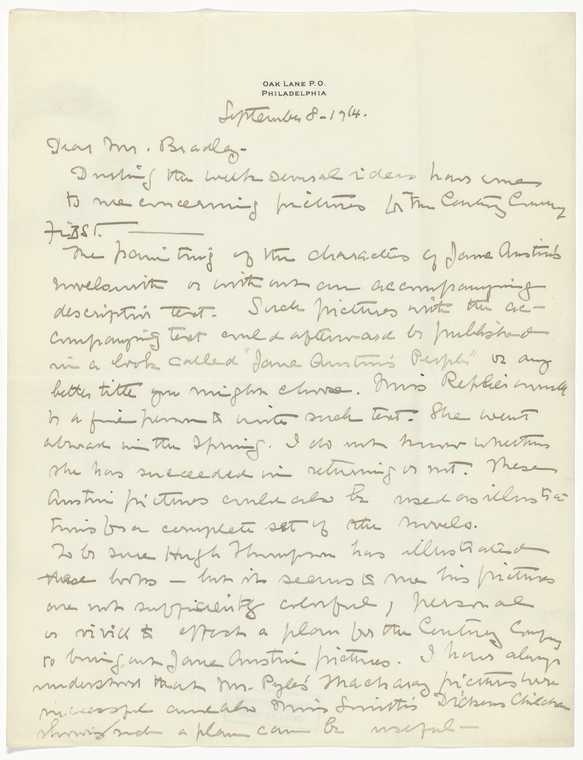 OAK LANE P.O.
PHILADELPHIA
September 8 - 1914.
Dear Mr. Bradley -
During the week several ideas have come
to me concerning pictures for the Century Company
FIRST. ———
The painting of the characters of Jane Austin's
novels with or without an accompanying
descriptive text. Such pictures with the ac-
companying text could afterward be published
in a book called "Jane Austin's People" or any
better title you might choose. Miss Repplier would
be a fine person to write such text. She went
abroad in the Spring. I do not know whether
she has succeeded in returning or not. These
Austin pictures could also be used as illustra-
tions for a complete set of the novels.
To be sure Hugh Thompson has illustrated
these books — but it seems to me his pictures
are not sufficiently colorful, personal
or vivid to affect a plan for the Century Company
to bring out Jane Austin pictures. I have always
understood that Mr. Pyle's Thackaray pictures were
successful and also Miss Smith's "Dickens Children
showing such a plan can be useful —